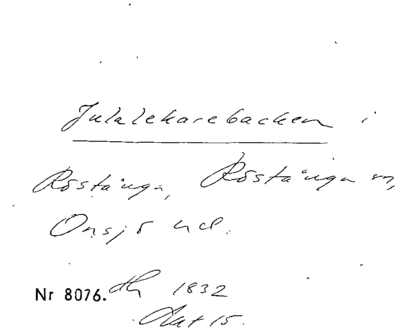 Julalekarebacken i
Röstånga, Röstånga sn,
Onsjö hd.
Nr 8076. 1832
Akt 15.